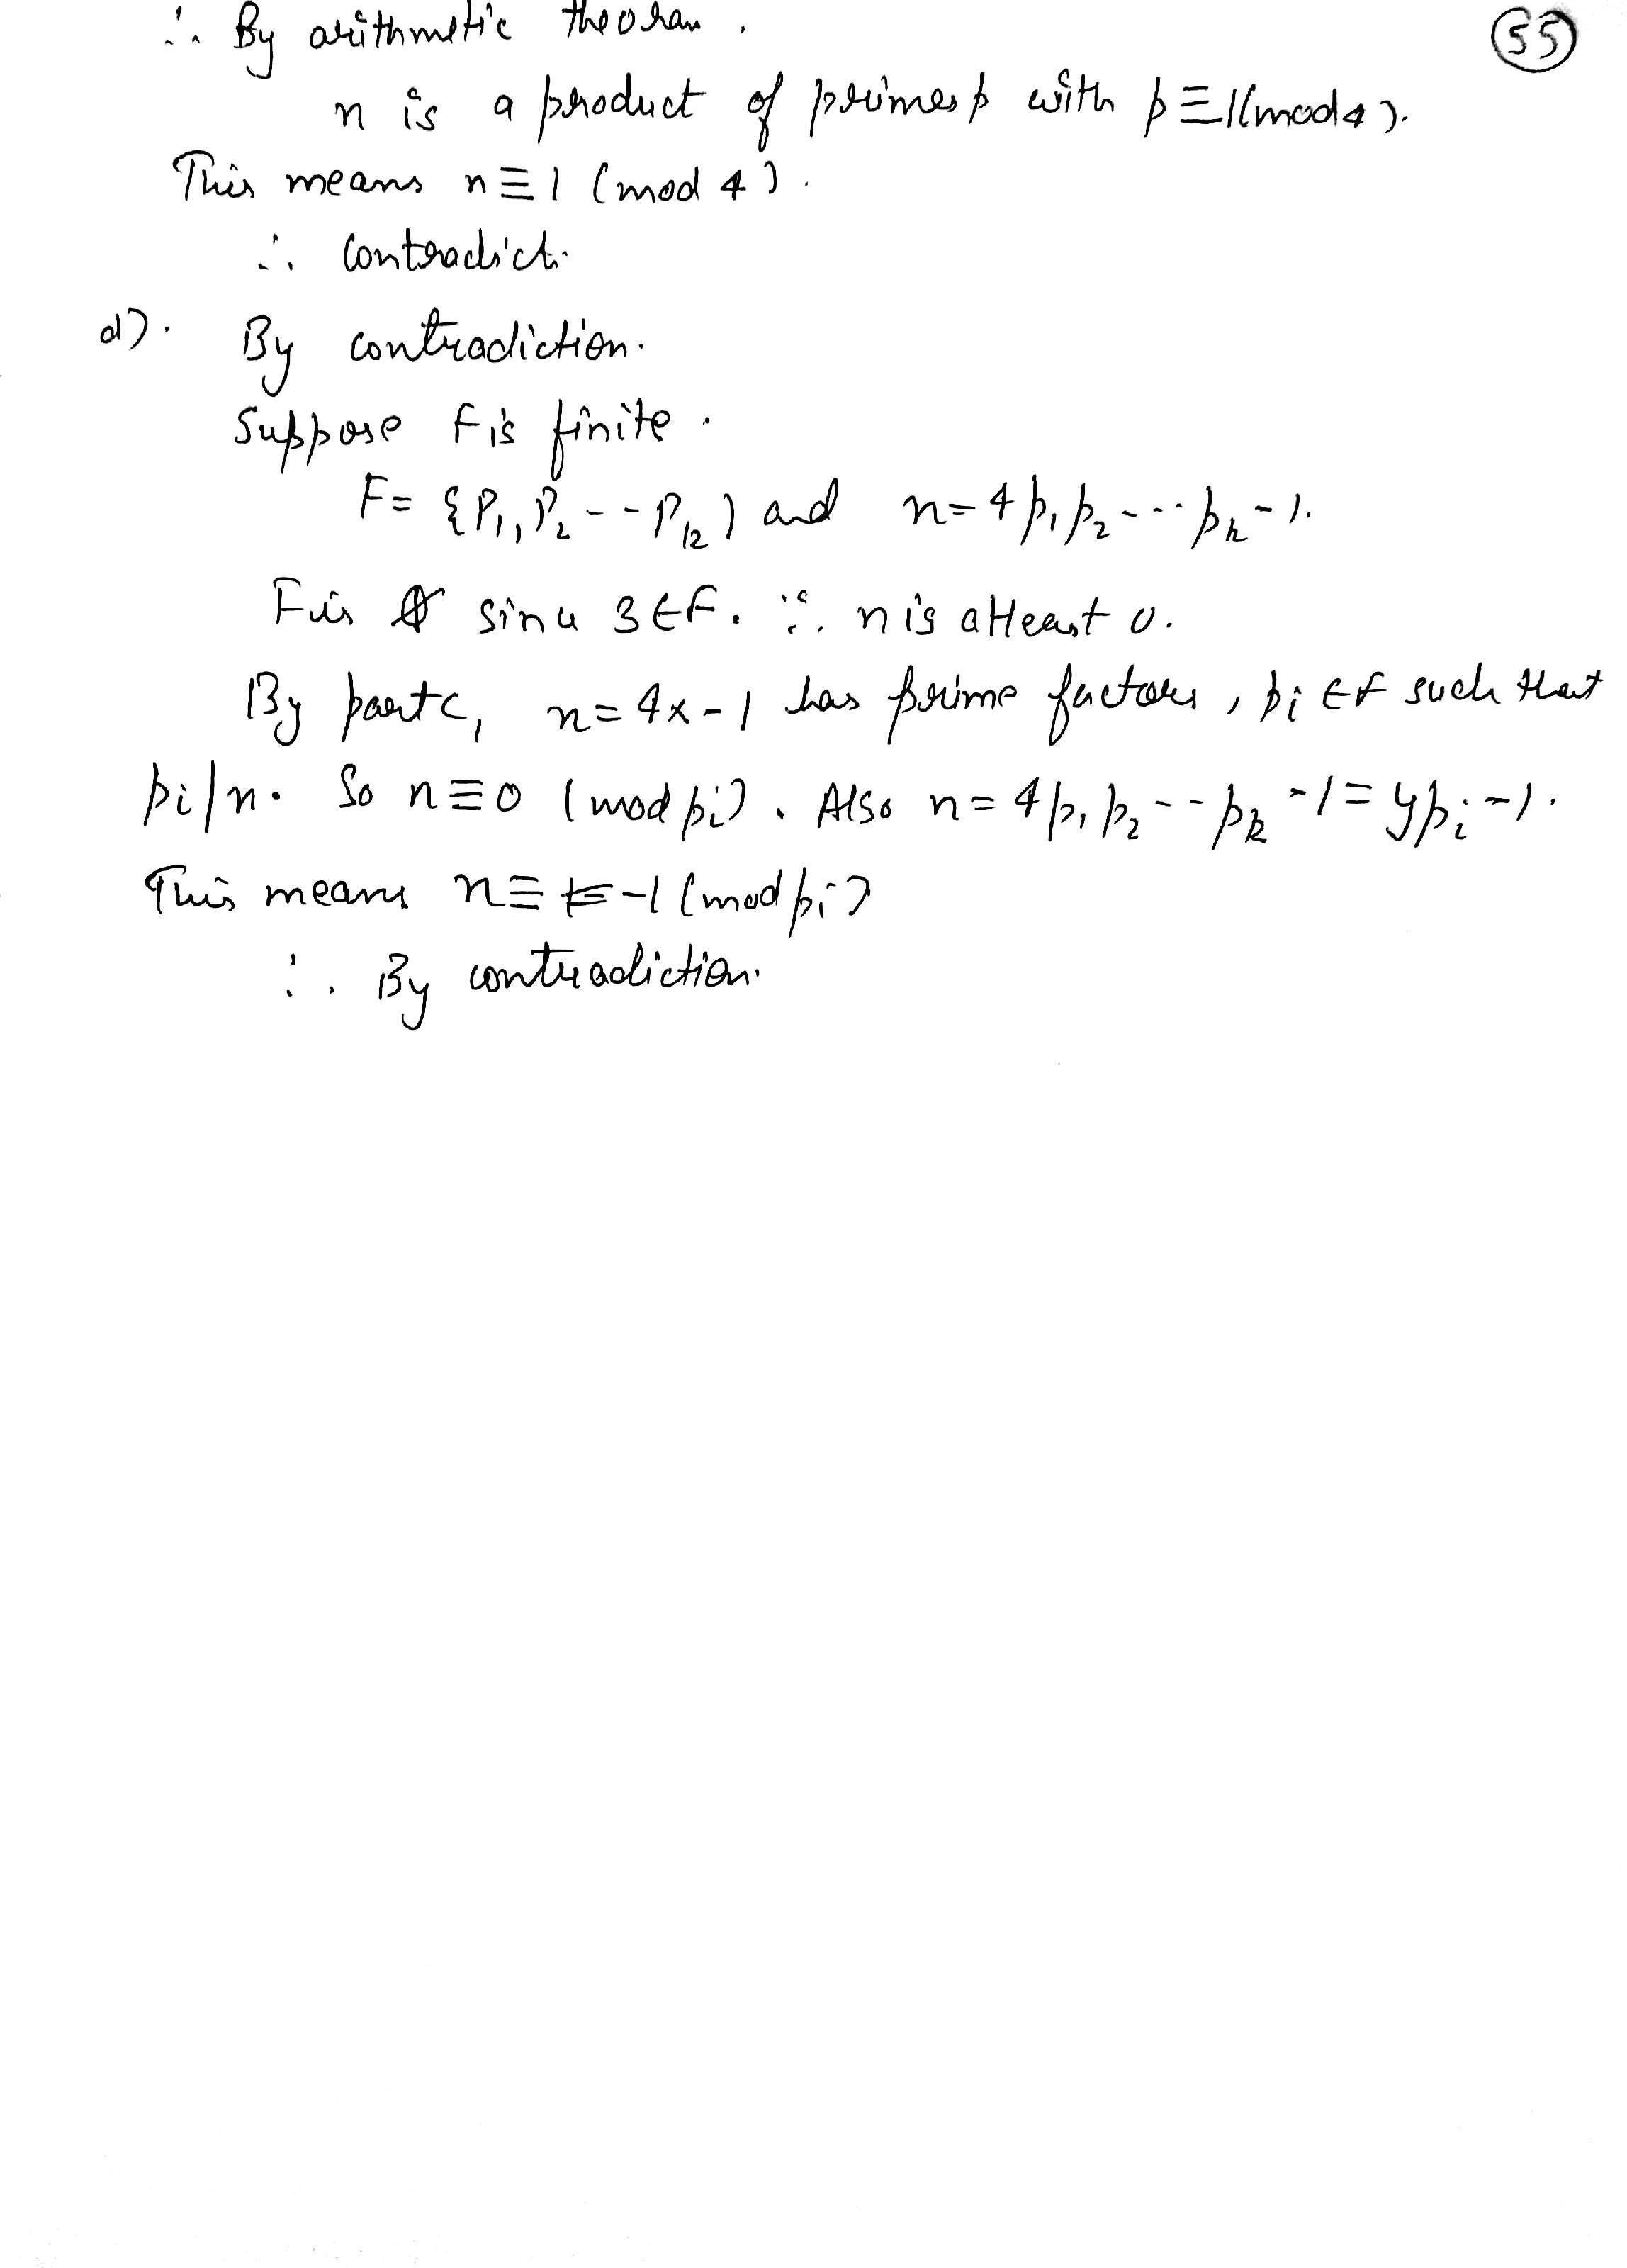 ∴ By arithmetic theoran. 55
n is a product of primes p with p≡1(mod 4).
This means n≡1 (mod 4).
∴ Contradicti.
d). By contradiction.
Suppose F is finite.
F= {P₁, P₂ -- Pₖ) and n=4p₁p₂---pₖ-1.
F is since 3∈F. ∴ n is atleast 0.
By part c, n=4x-1 has prime factors, pi ∈F such that
pi/n. So n≡0 (mod pi). Also n=4p₁p₂--pₖ-1=ypi-1.
This means n≡ -1 (mod pi)
∴ By contradiction.